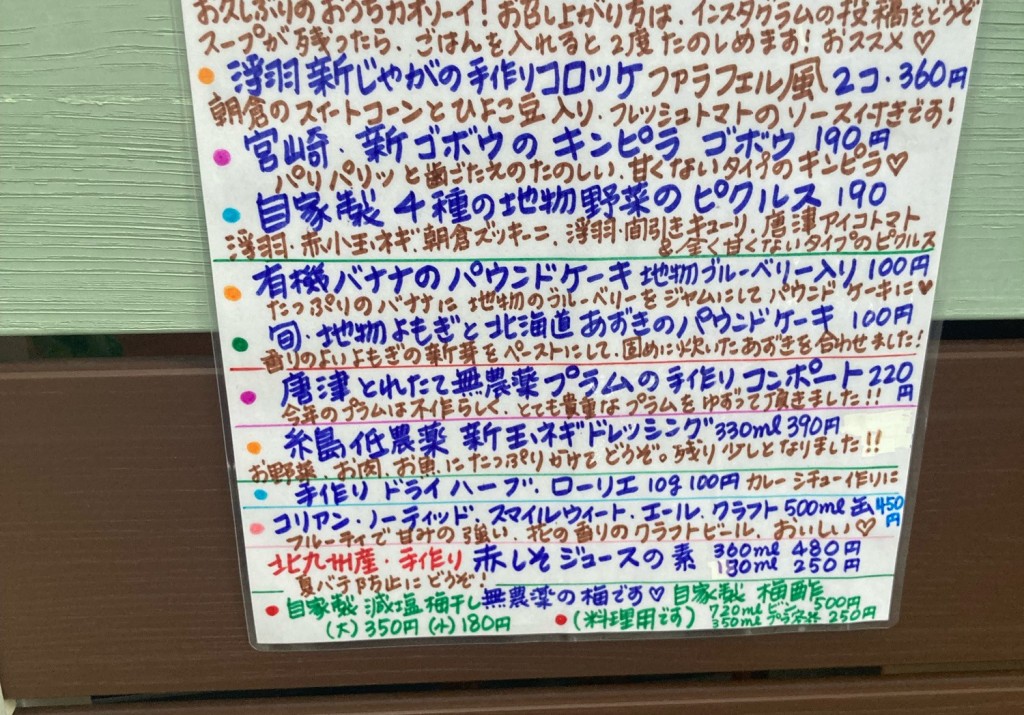 お久しぶりのおうちカオソーイ!お召し上がり方は、インスタグラムの投稿をどうぞ
スープが残ったら、ごはんを入れると2度たのしめます!おススメ♡
浮羽新じゃがの手作りコロッケ ファラフェル風 2コ・360円
朝倉のスイートコーンとひよこ豆入り、フレッシュトマトのソース付きです!
宮崎・新ゴボウのキンピラゴボウ 190円
パリパリッと歯ごたえのたのしい、甘くないタイプのキンピラ♡
自家製4種の地物野菜のピクルス 190
浮羽・赤小玉ネギ、朝倉ズッキーニ、浮羽・間引きキューリ、唐津アイコトマト
&全く甘くないタイプのピクルス
有機バナナのパウンドケーキ 地物ブルーベリー入り 100円
たっぷりのバナナに地物のブルーベリーをジャムにしてパウンドケーキに♥
旬・地物よもぎと北海道あずきのパウンドケーキ 100円
香りのよいよもぎの新芽をペーストにして、固めに炊いたあずきを合わせました!
唐津とれたて無農薬プラムの手作りコンポート220円
今年のプラムは不作らしく、とても貴重なプラムをゆずって頂きました!!
糸島低農薬 新玉ネギドレッシング330ml 390円
お野菜、お肉、お魚にたっぷりかけてどうぞ。残り少しとなりました!!
手作りドライハーブ、ローリエ 10g 100円 カレーシチュー作りに
コリアン・ノーティッド・スマイルウィート・エール、クラフト500ml缶450円
フルーティで甘みの強い、花の香りのクラフトビール、おいしい♡
北九州産・手作り 赤しそジュースの素 360ml 480円
180ml 250円
夏バテ防止にどうぞ!
自家製減塩梅干し無農薬の梅です♡ 自家製 梅酢
(大)350円(小)180円
(料理用です) 720mlビン 500円
350ml 250円